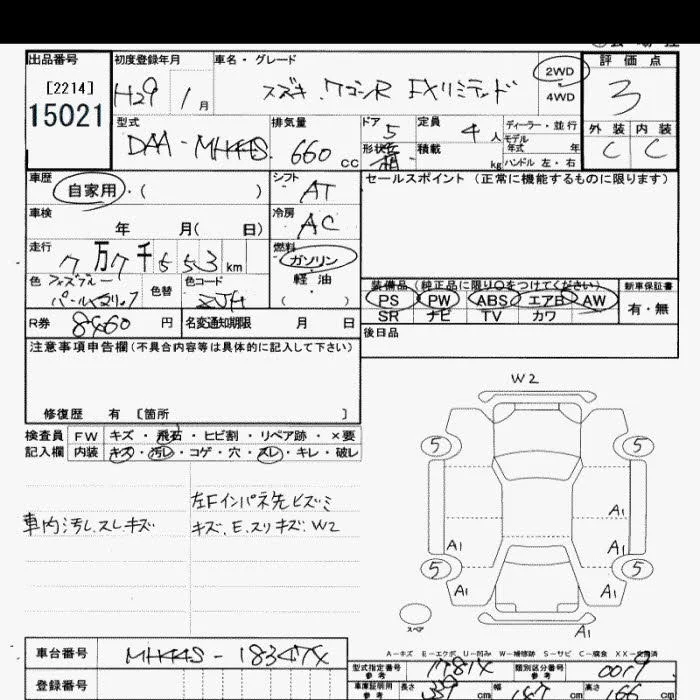 出品番号
[2214]
15021
初度登録年月
H29 1月
車名・グレード
スズキ ワゴンR FXリミテッド
2WD
4WD
評価点
3
外装 内装
C C
型式
DAA-MH44S
排気量
660 cc
ドア 5
形状 箱
定員 4人
積載 kg
ディーラー・並行
モデル年式 年
ハンドル 左・右
車歴
自家用・( )
シフト
AT
車検
年 月( 日)
冷房
AC
走行
7万7千553km
燃料
ガソリン
軽油
( )
色
パールメタリック
色替
色コード
ZJH
R券
8460円
名変通知期限 月 日
セールスポイント(正常に機能するものに限ります)
装備品(純正品に限り○をつけてください)
PS PW ABS エアB AW
SR ナビ TV カワ
新車保証書
有・無
後日品
注意事項申告欄(不具合内容等は具体的に記入して下さい)
修復歴 有 [箇所 ]
検査員 FW キズ・飛石・ヒビ割・リペア跡・×要
記入欄 内装 キズ・汚レ・コゲ・穴・スレ・キレ・破レ
車内汚し.スレキズ
左Fインパネ先ビズミ
キズ、E.スリキズ:W2
W2
5 5
A1
A1 A1
5 5
A1 A1
スペア
A1
A-キズ E-エクボ U-凹み W-補修跡 S-サビ C-腐食 XX-交換済
車台番号
MH44S-18347X
登録番号
型式指定番号
参考
1781X
類別区分番号
参考
0019
車庫証明用
参考
長さ 339cm
幅 147cm
高さ 166cm